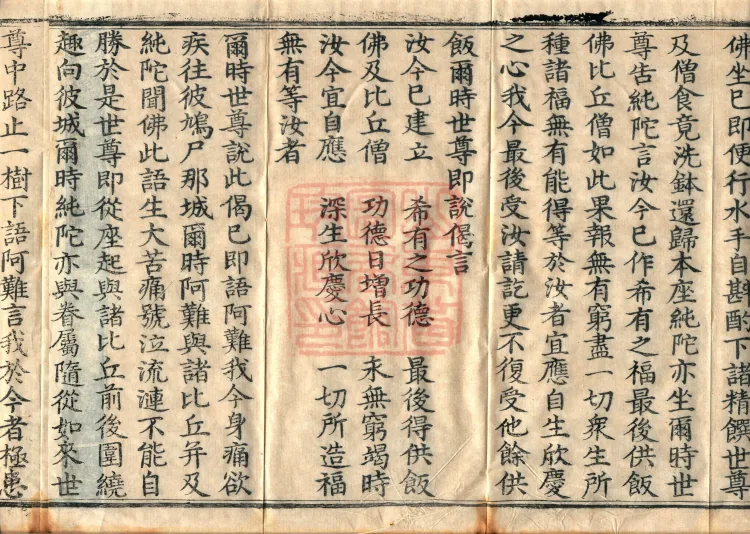 佛坐已即便行水手自斟酌下諸精饌世尊
及僧食竟洗鉢還歸本座純陀亦坐爾時世
尊告純陀言汝今已作希有之福最後供飯
佛比丘僧如此果報無有窮盡一切衆生所
種諸福無有能得等於汝者宜應自生欣慶
之心我今最後受汝請訖更不復受他餘供
飯爾時世尊即說偈言
汝今已建立　希有之功德　最後得供飯
佛及比丘僧　功德日增長　永無窮竭時
汝今宜自應　深生欣慶心　一切所造福
無有等汝者
爾時世尊說此偈已即語阿難我今身痛欲
疾往彼鳩尸那城爾時阿難與諸比丘并及
純陀聞佛此語生大苦痛號泣流漣不能自
勝於是世尊即從座起與諸比丘前後圍繞
趣向彼城爾時純陀亦與眷屬隨從如來世
尊中路止一樹下語阿難言我於今者極患